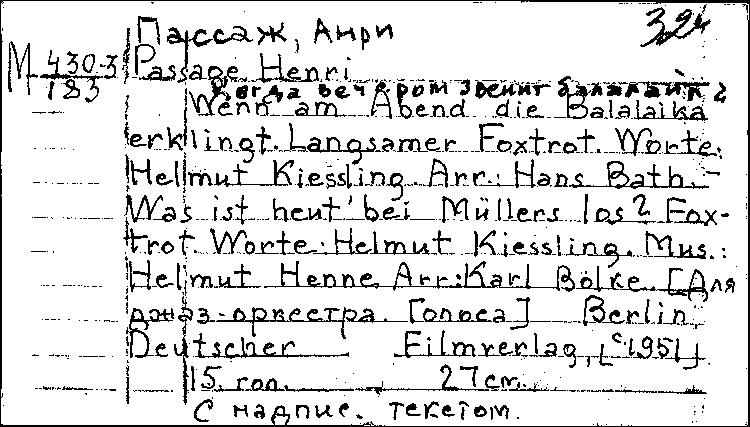 Пассаж, Анри
32
М 430-3
183
Passage Henri
Когда вечером звенит балалайка
Wenn am Abend die Balalaika
erklingt. Langsamer Foxtrot. Worte:
Helmut Kiessling. Arr.: Hans Bath. -
Was ist heut' bei Müllers los? Fox-
trot. Worte: Helmut Kiessling. Mus.:
Helmut Henne. Arr: Karl Bölke. [Для
джаз-оркестра. Голоса] Berlin,
Deutscher Filmverlag, [c 1951]
15 гол. 27 см.
С надпис. текстом.